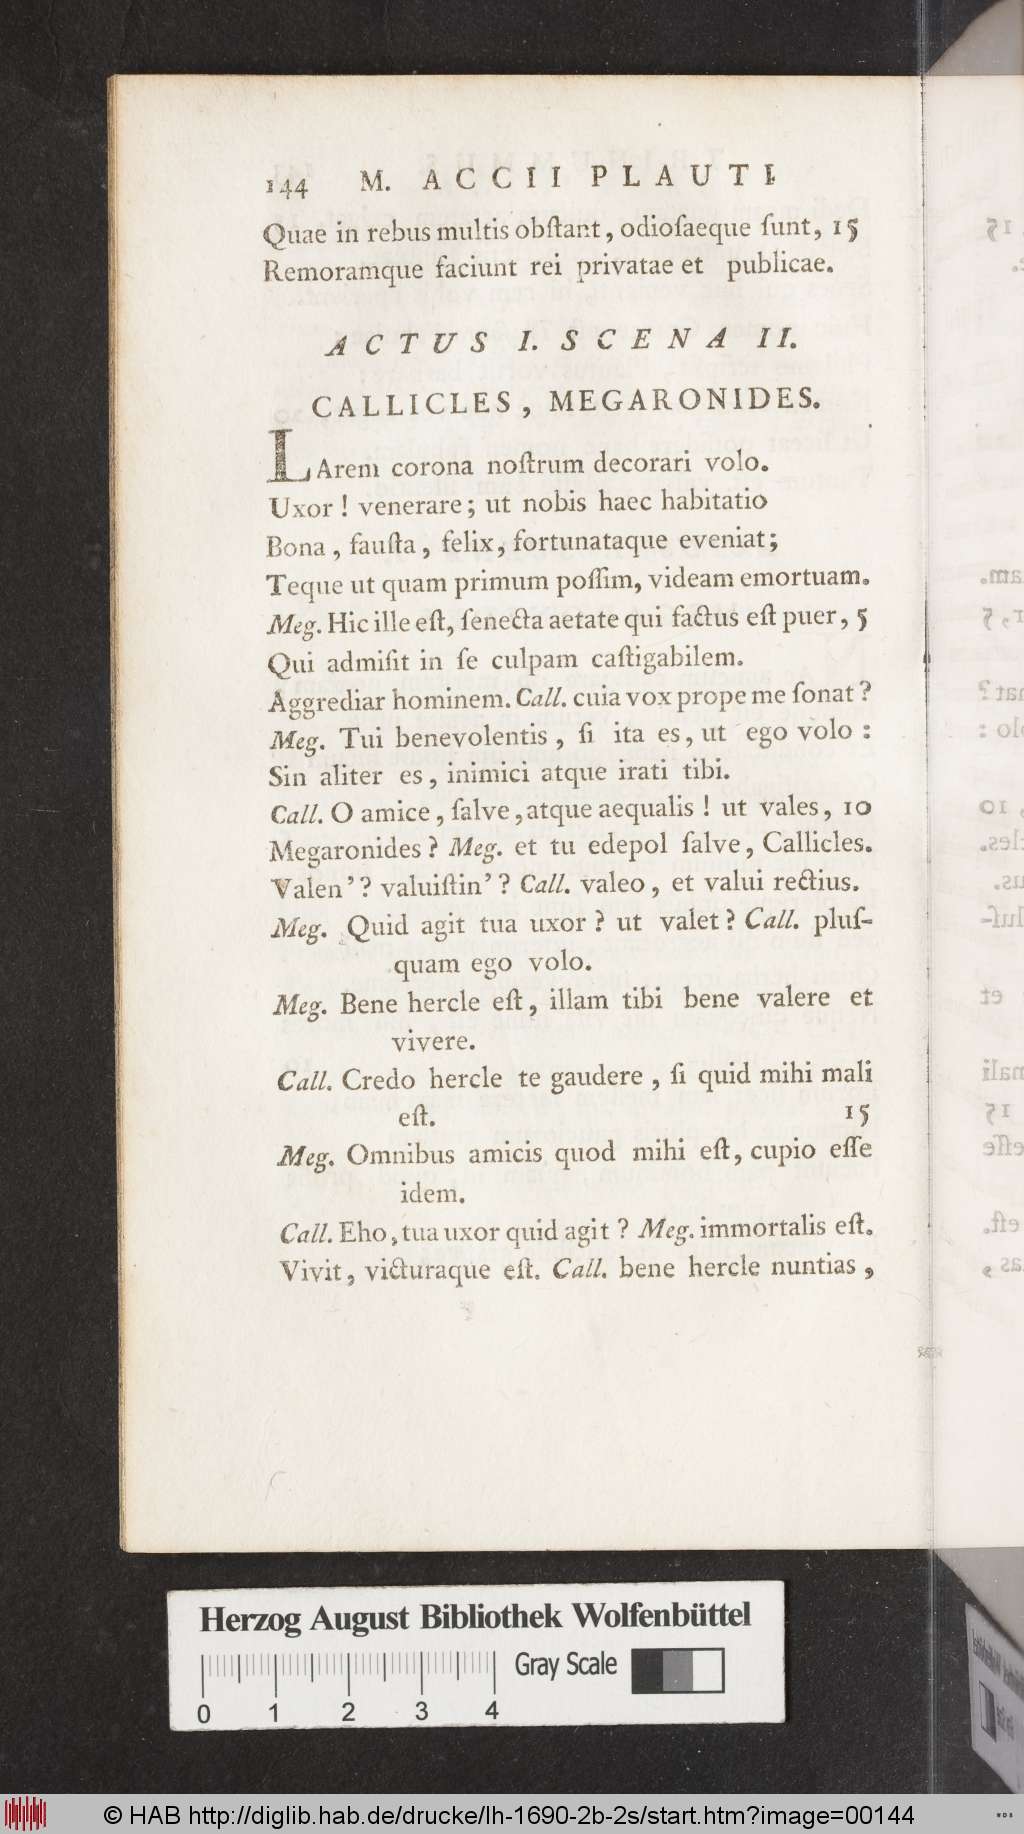 144 M. ACCII PLAUTI
Quae in rebus multis obſtant, odioſaeque ſunt, 15
Remoramque faciunt rei privatae et publicae.
ACTUS I. SCENA II.
CALLICLES, MEGARONIDES.
LArem corona noſtrum decorari volo.
Uxor! venerare; ut nobis haec habitatio
Bona, fauſta, felix, fortunataque eveniat;
Teque ut quam primum poſſim, videam emortuam.
Meg. Hic ille eſt, ſenecta aetate qui factus eſt puer, 5
Qui admiſit in ſe culpam caſtigabilem.
Aggrediar hominem. Call. cuia vox prope me ſonat?
Meg. Tui benevolentis, ſi ita es, ut ego volo:
Sin aliter es, inimici atque irati tibi.
Call. O amice, ſalve, atque aequalis! ut vales, 10
Megaronides? Meg. et tu edepol ſalve, Callicles.
Valen'? valuiſtin'? Call. valeo, et valui rectius.
Meg. Quid agit tua uxor? ut valet? Call. pluſ-
quam ego volo.
Meg. Bene hercle eſt, illam tibi bene valere et
vivere.
Call. Credo hercle te gaudere, ſi quid mihi mali
eſt. 15
Meg. Omnibus amicis quod mihi eſt, cupio eſſe
idem.
Call. Eho, tua uxor quid agit? Meg. immortalis eſt.
Vivit, victuraque eſt. Call. bene hercle nuntias,
Herzog August Bibliothek Wolfenbüttel
Gray Scale
0 1 2 3 4
© HAB http://diglib.hab.de/drucke/lh-1690-2b-2s/start.htm?image=00144